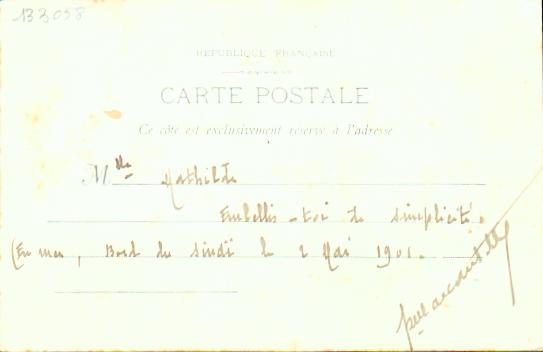 133058
RÉPUBLIQUE FRANÇAISE
CARTE POSTALE
Ce côté est exclusivement réservé à l'adresse
Mlle Mathilde
Embellis-toi de simplicité.
(En mer, Bord du Sindï le 2 Mai 1901.